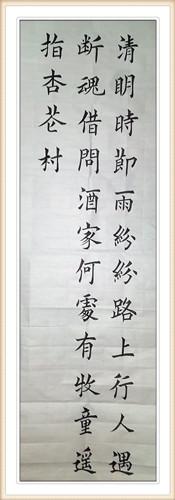 清明時節雨紛紛路上行人遇
断魂借問酒家何處有牧童遥
指杏花村